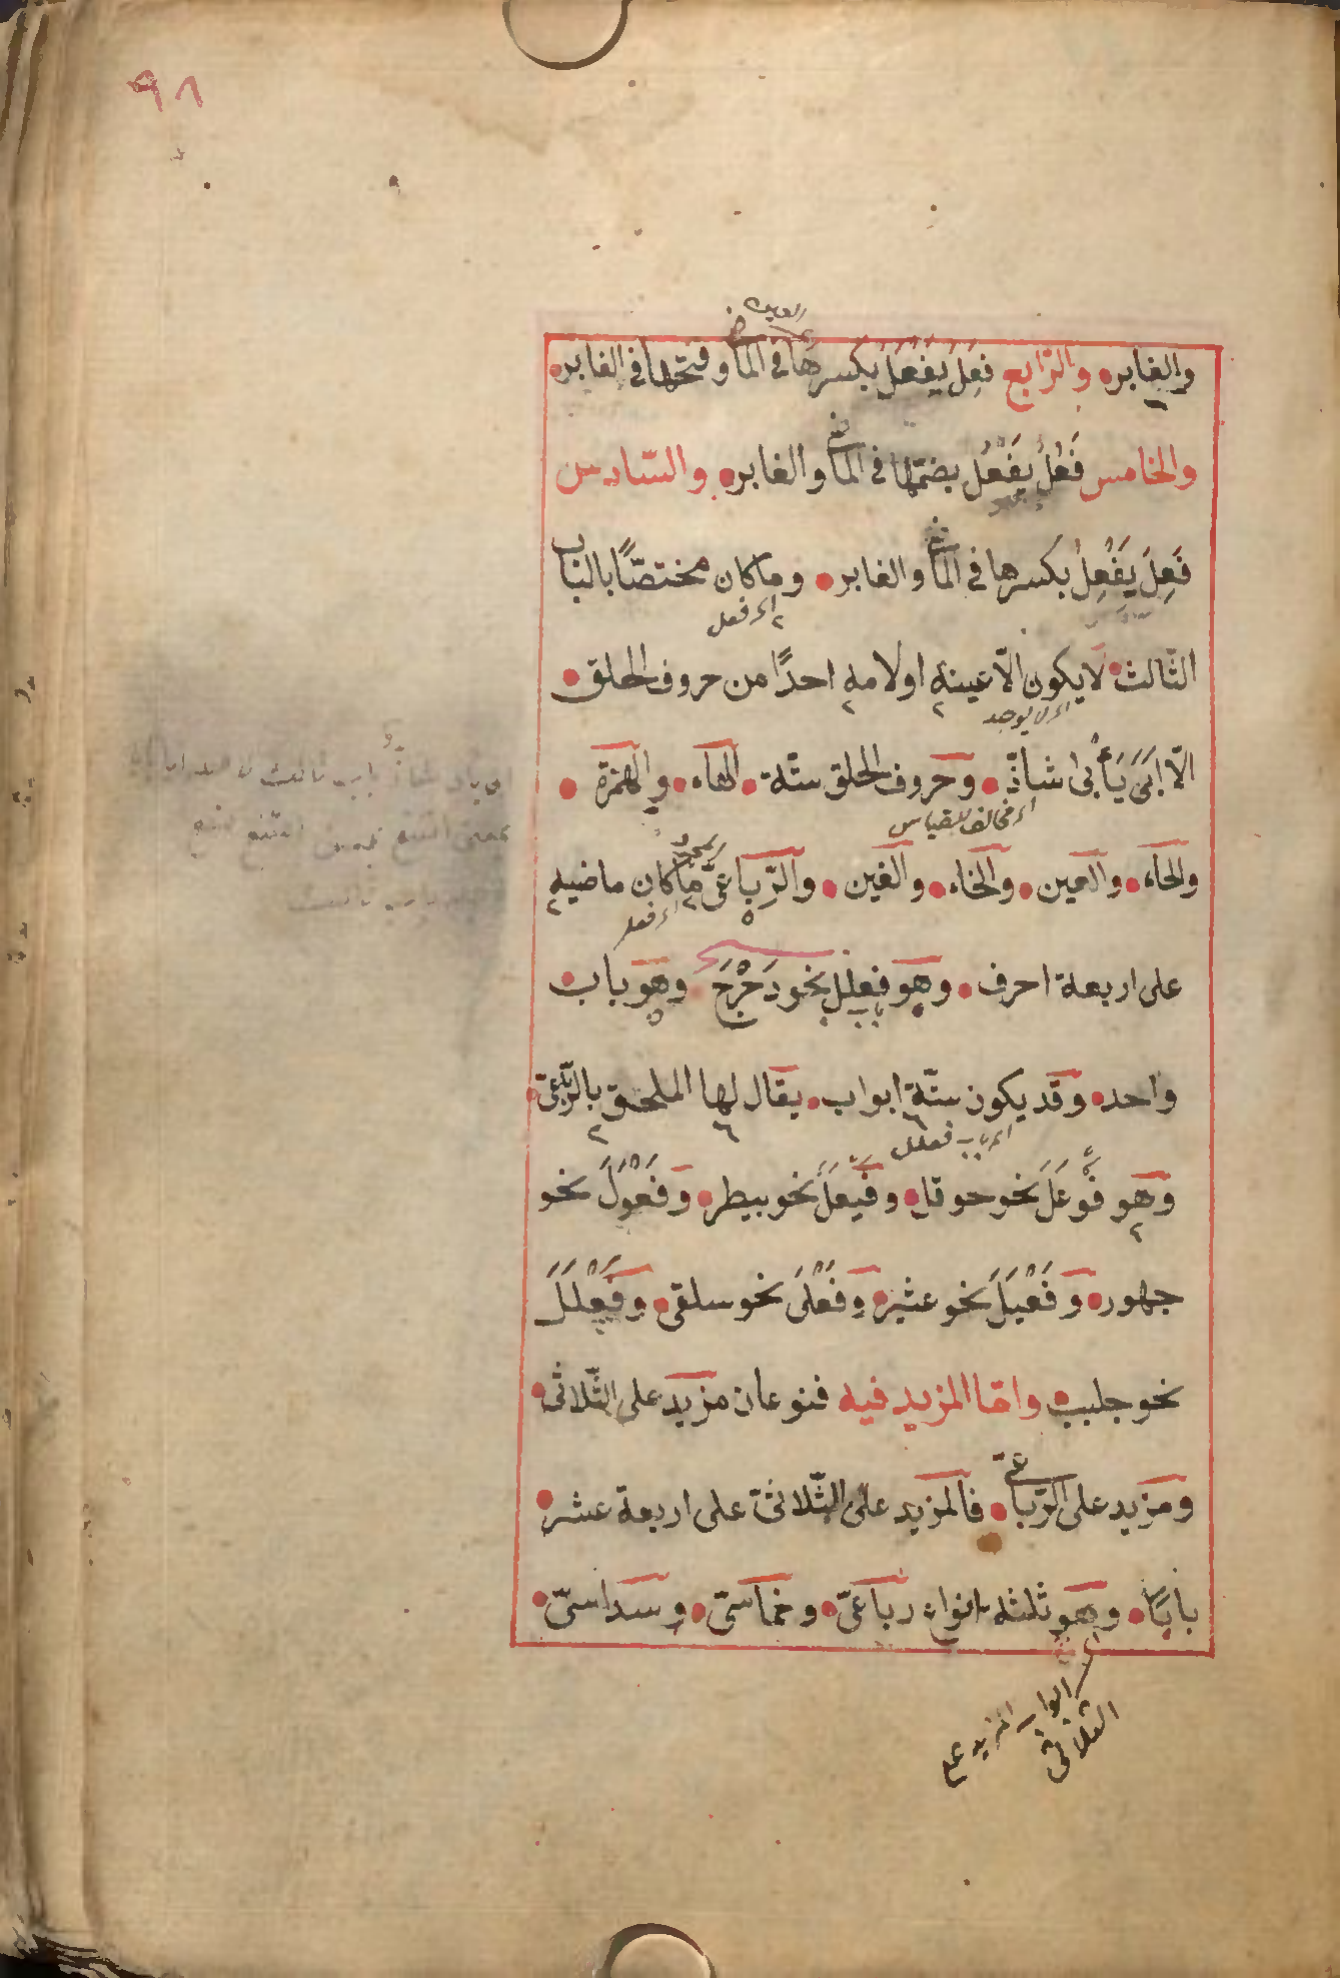 ٩٨
العين
والغابر والرّابع فَعِلَ يَفْعَلُ بكسرها فى الماضى وفتحها فى الغابر
والخامس فَعُلَ يَفْعُلُ بضمّها فى الماضى والغابر والسّادس
فَعِلَ يَفْعِلُ بكسرها فى الماضى والغابر وما كان مختصّاً بالباب
اى فعل
الثّالث لا يكون الّا عينه او لامه احدًا من حروف الحلق
اى لا يوجد
الّا اَبَىَ يَأْبىَ شاذّ وحروف الحلق ستّة الهاء والهمزة
اى مخالف للقياس
والحاء والعين والخاء والغين والرّباعىّ ما كان ماضيه
اى فعل
على اربعة احرف وهو فعلل نحو دَحْرَجَ وهو باب
واحد وقد يكون ستّة ابواب يقال لها الملحق بالرّباعىّ
اى باب فعلل
وهو فَوْعَلَ نحو حوقل وفَيْعَلَ نحو بيطر وفَعْوَلَ نحو
جهور وفَعْيَلَ نحو عثير وفَعْلَى نحو سلقى وفَعْلَلَ
نحو جلبب وامّا المزيد فيه فنوعان مزيد على الثّلاثى
ومزيد على الرّباعىّ فالمزيد على الثّلاثىّ على اربعة عشر
بابًا وهو ثلثة انواع رباعىّ وخماسىّ وسداسىّ
ابواب المزيد على
الثلاثى